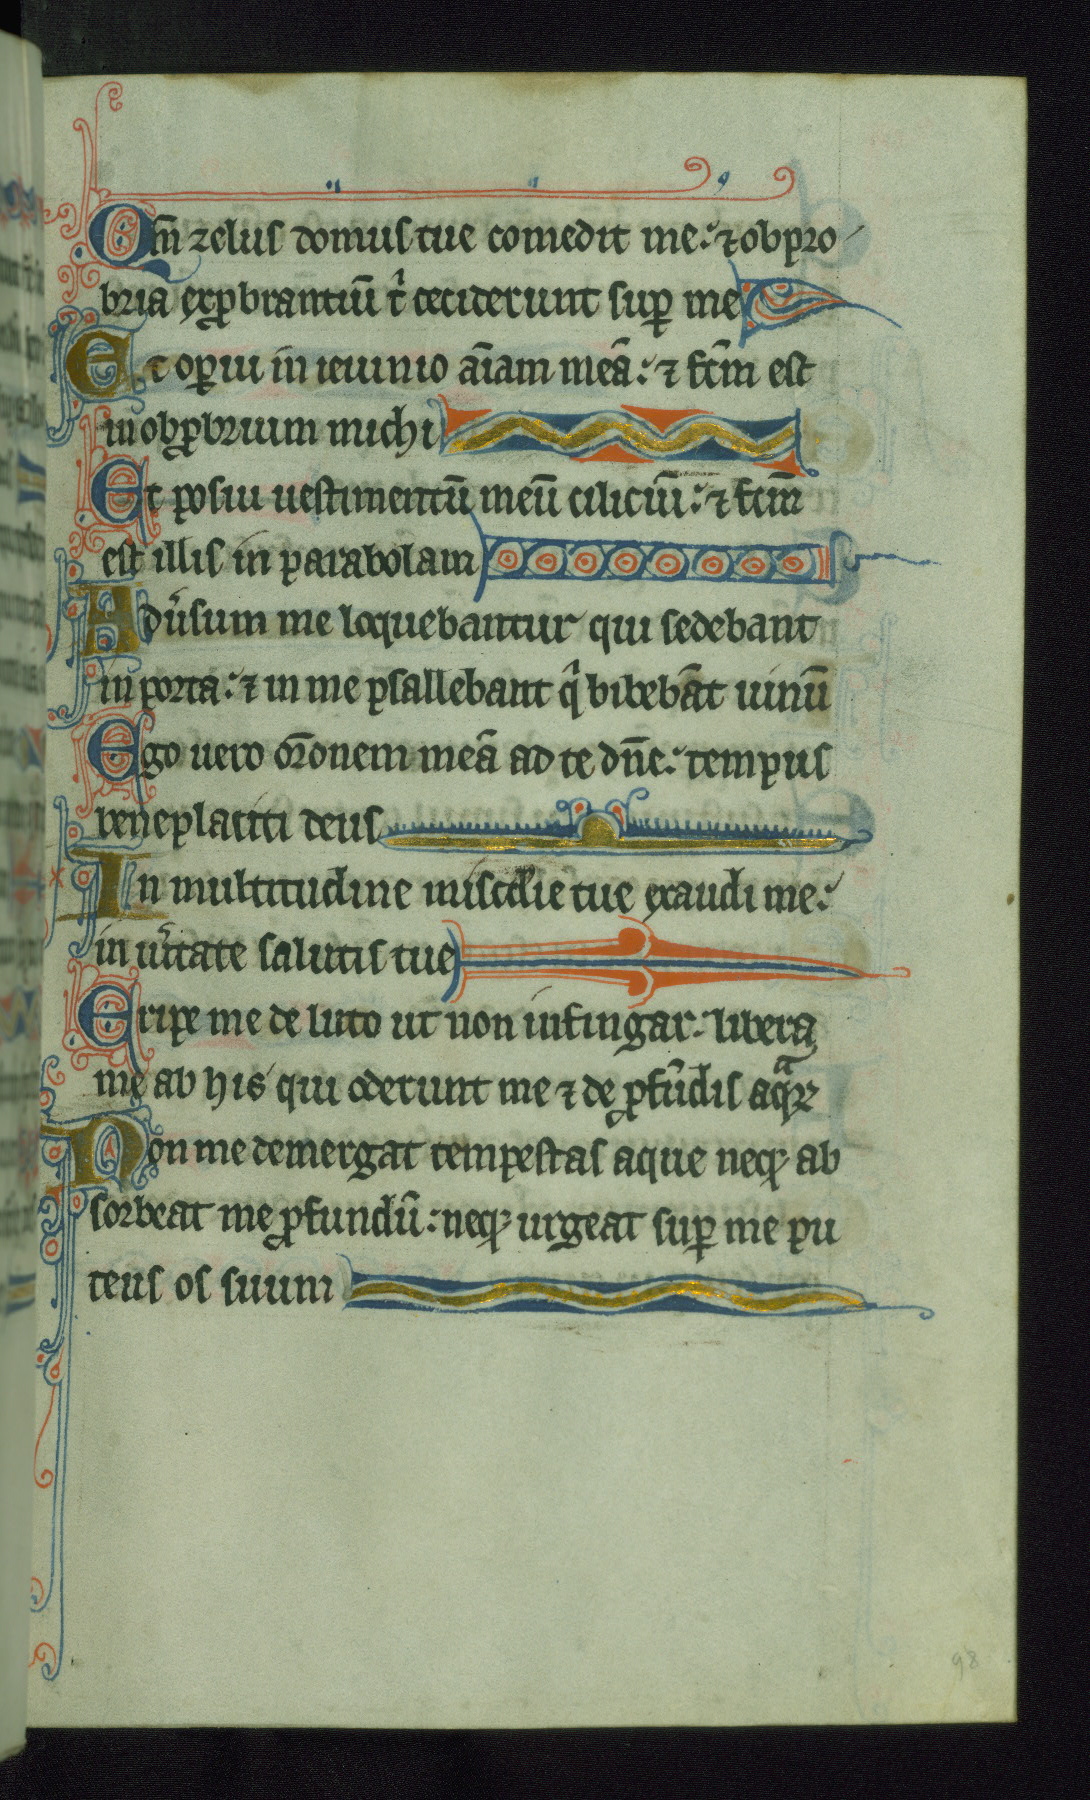 Qm̄ zelus domus tue comedit me: ⁊ obpro
bria exꝓbrantiū t̉ ceciderunt suꝑ me
Et oꝑui in ieiunio aīam meā: ⁊ fcm̄ est
in obꝓbrium michi
Et posui uestimentū meū ciliciū: ⁊ fcm̄
est illis in parabolam
Adu̾sum me loquebantur qui sedebant
in porta: ⁊ in me psallebant qi bibebāt uinū
Ego uero or̄onem meā ad te dn̄e: tempus
beneplaciti deus
In multitudine misc̄die tue exaudi me:
in u̾itate salutis tue
Eripe me de luto ut non infingar: libera
me ab his qui oderunt me ⁊ de ꝓfūdis aqᷓꝝ
Non me demergat tempestas aque neqꝫ ab
sorbeat me ꝓfundū: neqꝫ urgeat suꝑ me pu
teus os suum
98